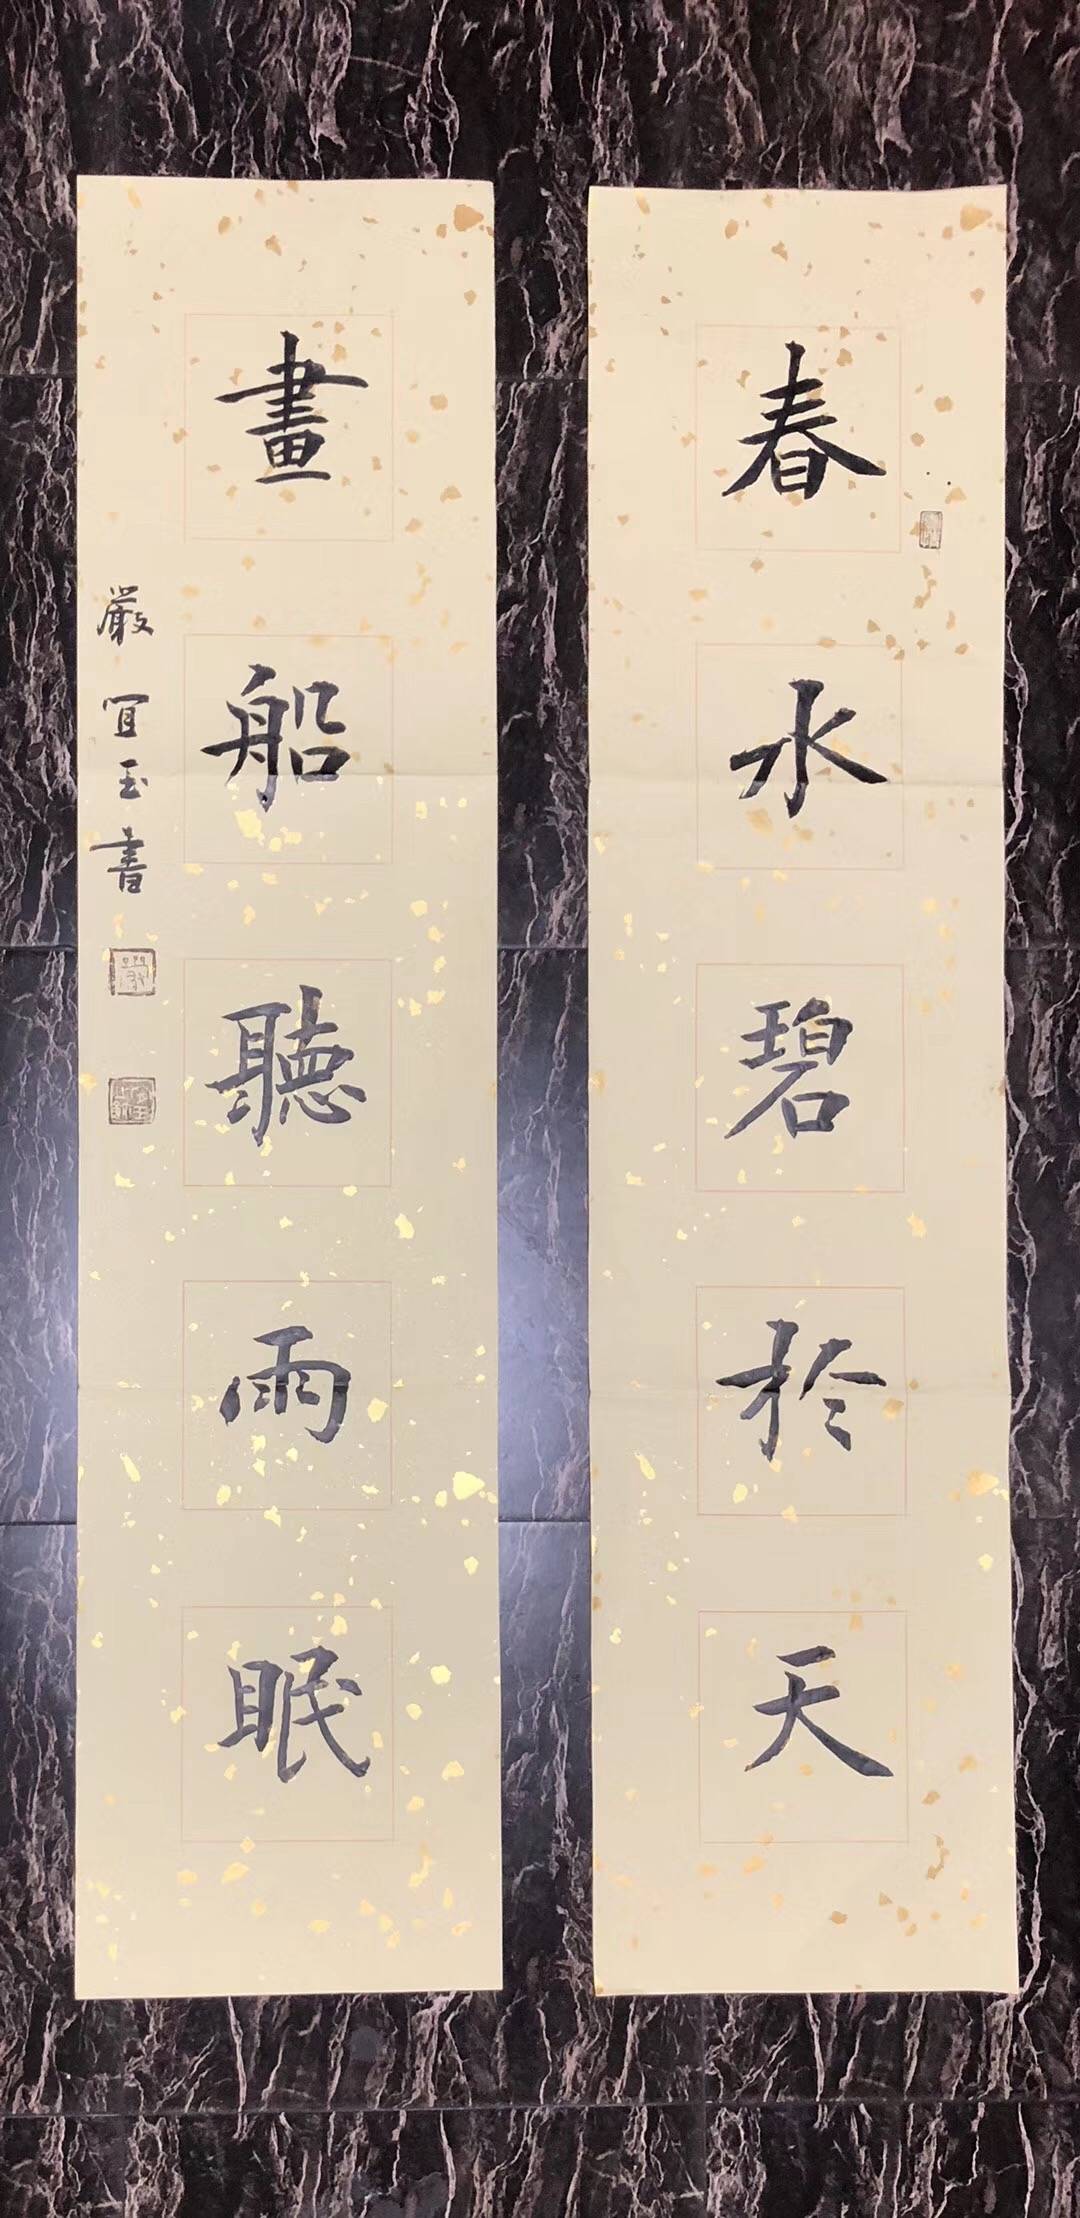 春水碧於天
畫船聽雨眠
嚴宜玉書